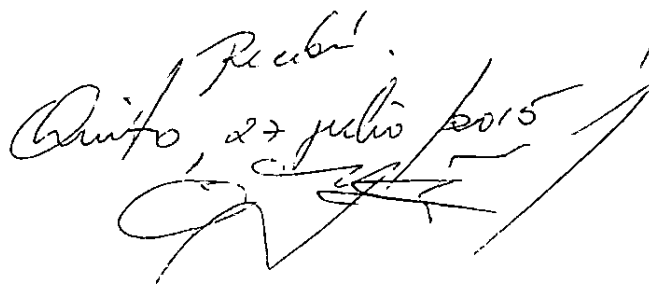 Recibí.
Quito, 27 julio 2015